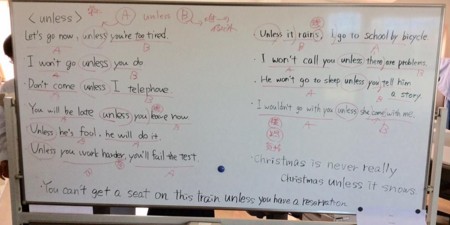 <unless>
A unless B
Let's go now, unless you're too tired.
I won't go unless you do
Don't come unless I telephone
You will be late unless you leave now
Unless he's fool, he will do it.
Unless you work harder, you'll fail the test.
You can't get a seat on this train unless you have a reservation.
Unless it rains, I go to school by bicycle
I won't call you unless there are problems.
He won't go to sleep unless you tell him
a story
I wouldn't go with you unless she come with me.
Christmas is never really
Christmas unless it snows.